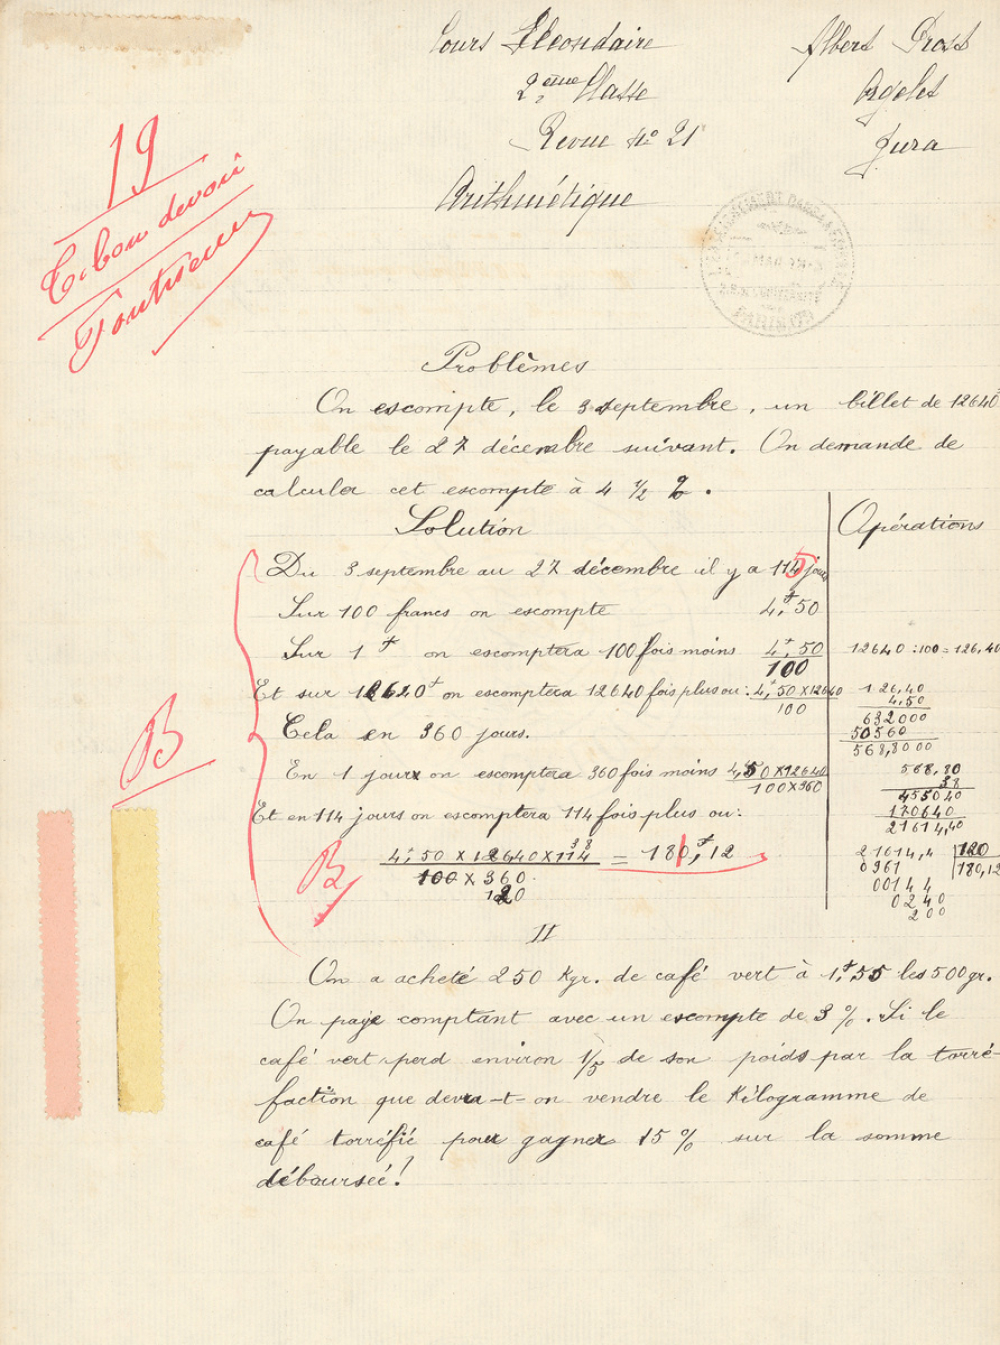 Cours Secondaire
2ème Classe
Revue No 21
Arithmétique
Albert Gross
Orgelet
Jura
19
T. bon devoir
PARIS
Problèmes
On escompte, le 3 septembre, un billet de 12640f
payable le 27 décembre suivant. On demande de
calculer cet escompte à 4 1/2 %.
Solution
Opérations
Du 3 septembre au 27 décembre il y a 114 jours
5
Sur 100 francs on escompte 4,f 50
Sur 1 f on escomptera 100 fois moins 4,f 50 / 100
Et sur 12640f on escomptera 12640 fois plus ou: 4,f 50 x 12640 / 100
Cela en 360 jours.
En 1 jour on escomptera 360 fois moins 4,50 x 12640 / 100 x 360
Et en 114 jours on escomptera 114 fois plus ou:
4,50 x 12640 x 114 / 100 x 360 = 180,f 12
38
120
B
B
12640 : 100 = 126,40
126,40
4,50
632000
50560
568,8000
568,80
38
455040
170640
21614,40
21614,4 | 120
0961 | 180,12
00144
0240
200
II
On a acheté 250 Kgr. de café vert à 1,f55 les 500 gr.
On paye comptant avec un escompte de 3 %. Si le
café vert perd environ 1/5 de son poids par la torré-
faction que devra-t-on vendre le Kilogramme de
café torréfié pour gagner 15 % sur la somme
déboursée!